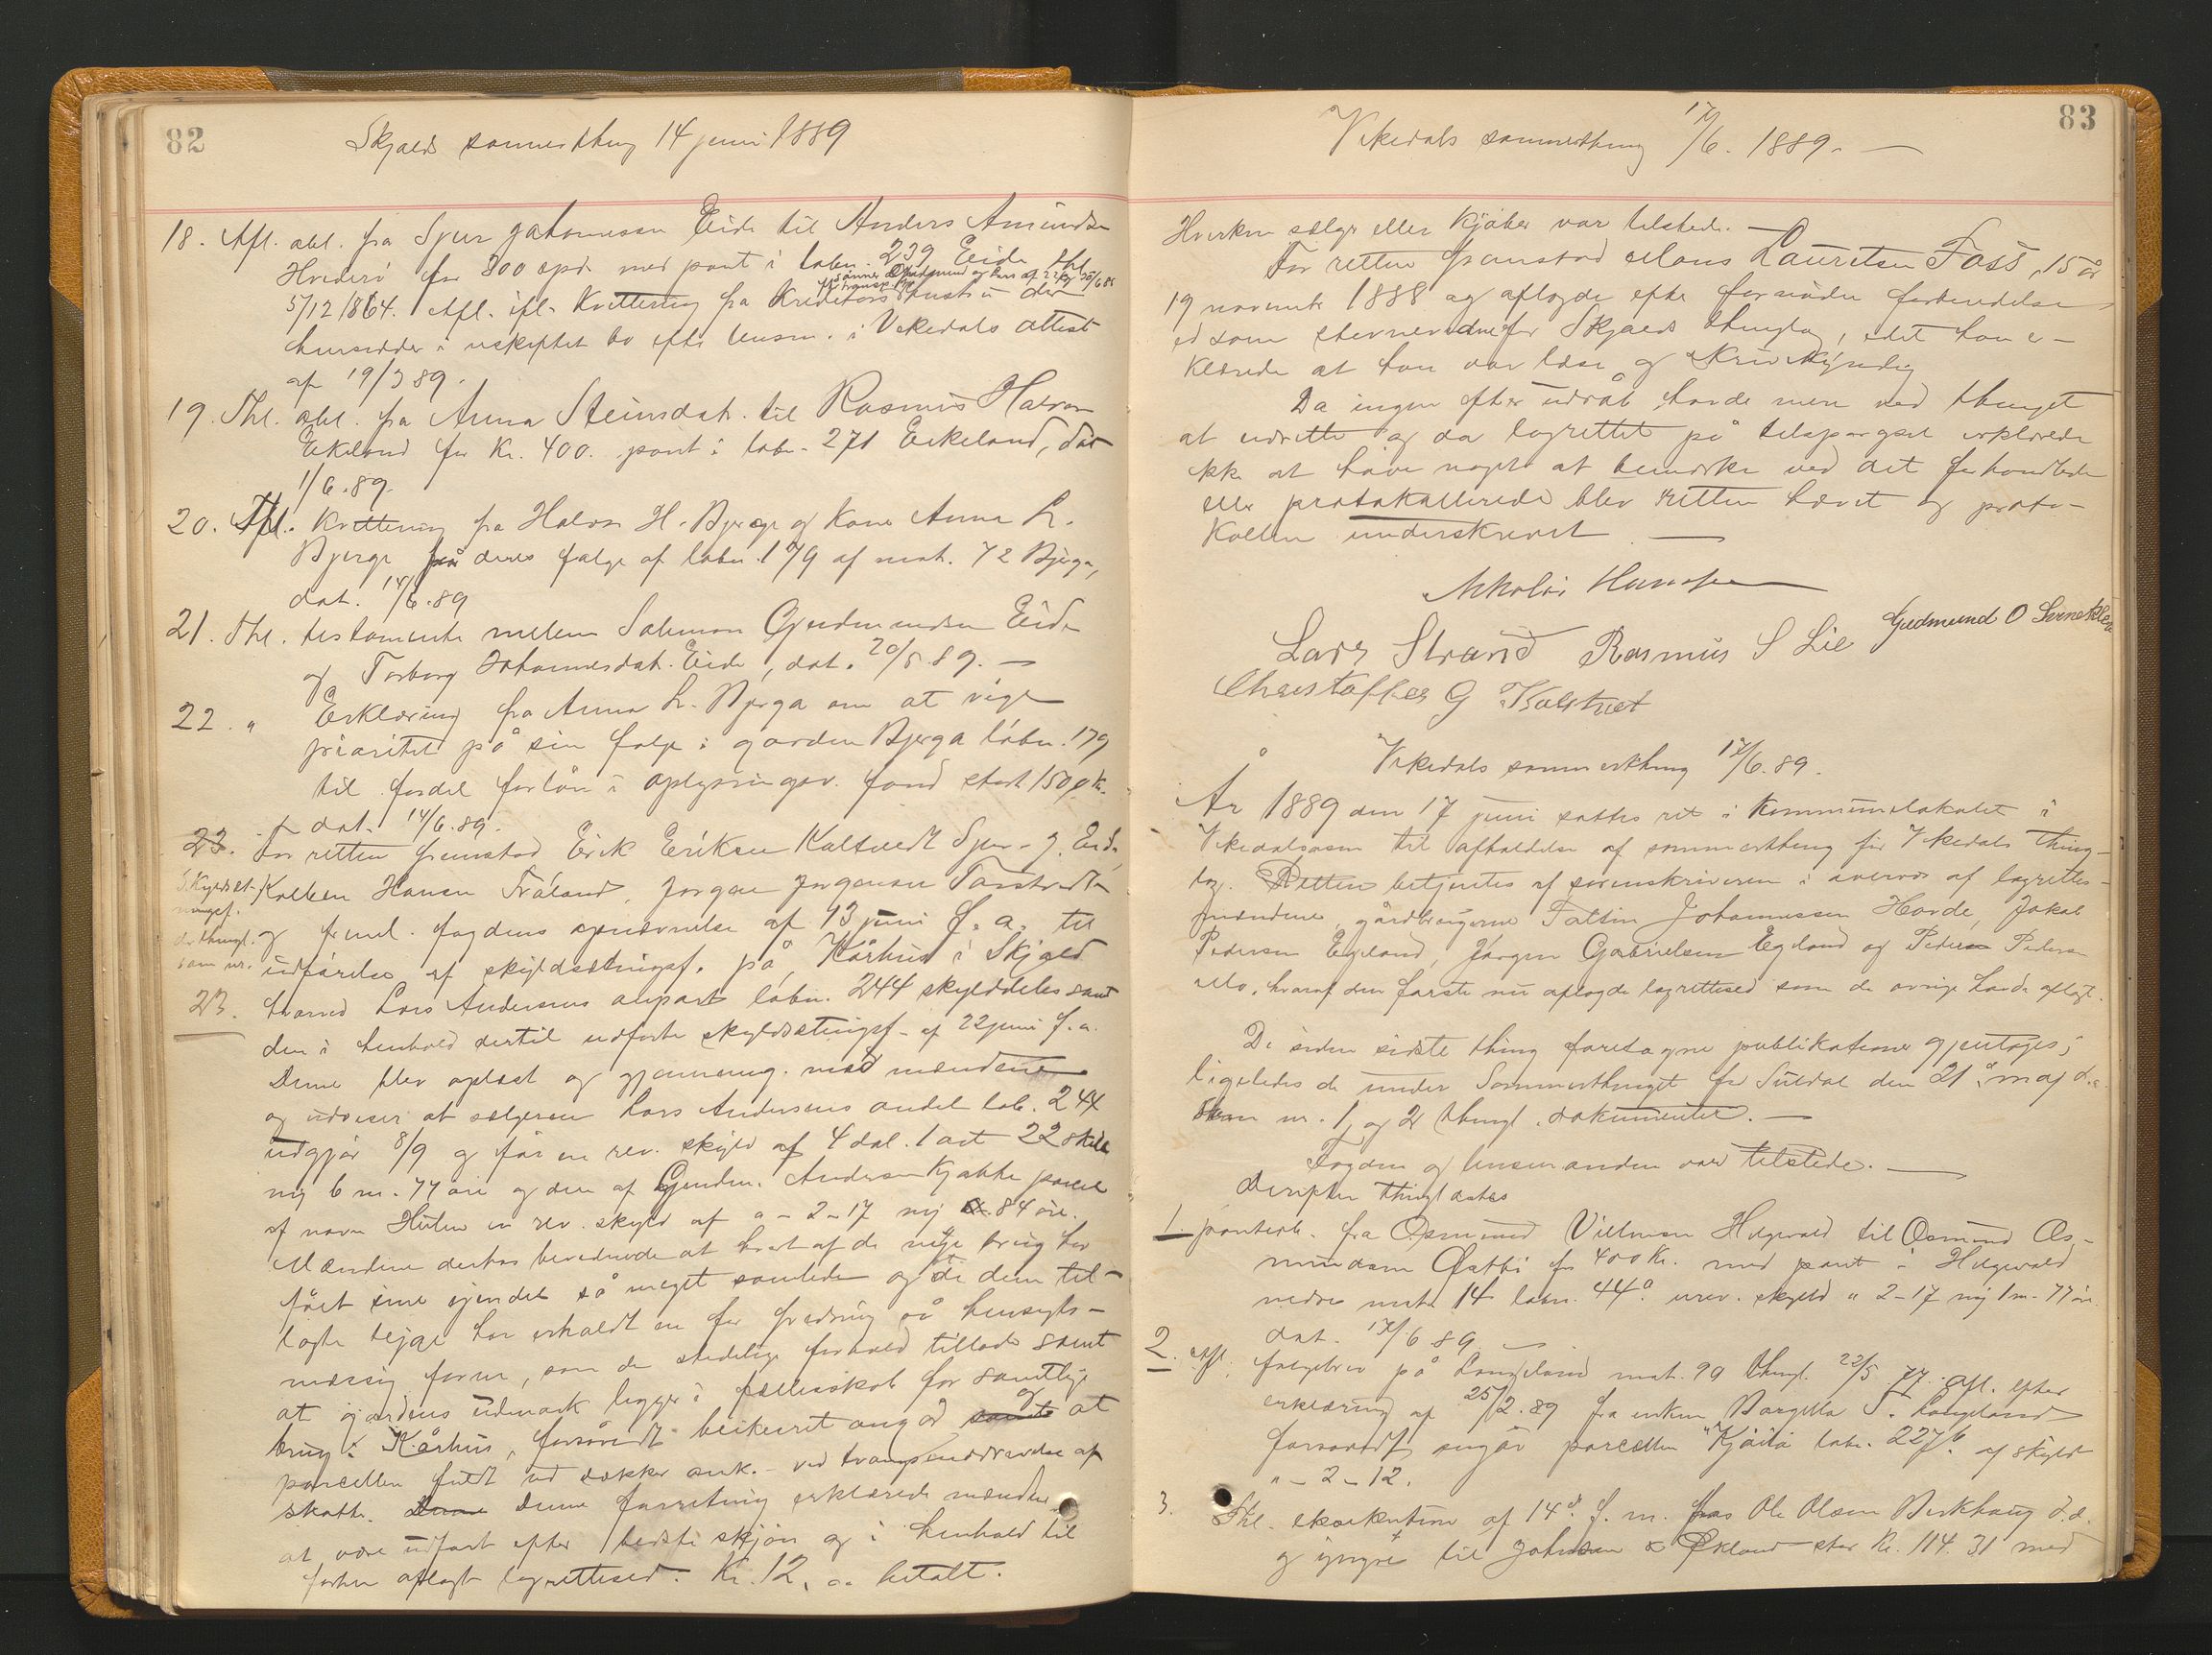 82
Skjolds sommerthing 14 juni 1889
18. Afl. obl. fra Sjur Johannesen Eide til Anders Amundsen
Hviderö for 300 spd. med pant i løbn. 239 Eide thl.
5/12/1864. Afl. ifl. kvittering fra kreditors hustru der
hensidder i uskiftet bo efter lensm. i Vikedals attest
af 19/3 89.
19. Thl. obl. fra Anna Steinsdat. til Rasmus Halvorsen
Eikeland for Kr. 400. pant i løbn. 271 Eikeland, dat.
1/6.89.
20. Afl. kvittering fra Halvor H. Bjerge og kone Anna L.
Bjerge på deres følge af løbn. 179 af mat. 72 Bjerga,
dat. 14/6.89
21. Thl. testamente mellem Salemon Gudmundsen Eide
og Torborg Johannesdat. Eide, dat. 20/5 89. —
22. " Erklæring fra Anna L. Bjerga om at vige
prioritet på sin følge i gården Bjerga løbn. 179
til fordel for lån i oplysningsv. fond stort 1500 kr.
dat. 14/6.89.
23. For retten fremstod Erik Eriksen Kaltvedt Sjur J. Eide,
Skyldsæt- Kolben Hansen Tråland, Jørgen Jørgensen
ningsf. og freml. fogdens opnævnelse af 13 juni f. a. til
derthingl. udførelse af skyldsætningsf. på Kårhus i Skjold
som nr.
23. hvorved Lars Andersens anpart løbn. 244 skylddeles samt
den i henhold dertil udførte skyldsætningsf. af 22 juni f. a.
Denne blev oplæst og gjennemg. med mændene
og udviser at sælgeren Lars Andersens andel løb. 244
udgjør 8/9 og får en rev. skyld af 4 dal. 1 ort 22 skill
ny 6 m. 77 øre og den af Gudm. Andersen kjøbte parcel
af navn Hulen en rev. skyld af " - 2 - 17 ny 84 øre.
Mændene derhos bevidnede at hvert af de nye brug har
fået sine eiendele så meget samlede og de dem til-
lagte teige har erholdt en for fredning og hensigts-
mæssig form, som de stedlige forhold tillade samt
at gårdens udmark ligger i fællesskab for samtlige
brug i Kårhus, forsåvidt beiteret angår og at
parcellen fuldt ud dækker ank. ved tvangsinddrivelse af
skatte. Denne forretning erklærede mændene
at være udført efter bedste skjøn og i henhold til
forhen aflagt lagretteed. Kr. 12, oo betalt.
83
Vikedals sommerthing 17/6. 1889. —
Hverken sælger eller kjøber var tilstede. —
For retten fremstod Mons Lauritsen Foss, 15 år
19 november 1888 og aflagde efter foranliden forberedelse
ed som stevnevidne for Skjolds thinglag, idet han er-
klærede at han var læse og skrivekyndig
Da ingen efter udråb havde mere ved thinget
at udrette og da lagrettet på tilspørgsel erklærede
ikke at have noget at bemærke ved det forhandlede
eller protokollerede blev retten hævet og proto-
kollen underskrevet. —
Nikolai Hansen
Lars Strand Rasmus S Lie Gudmund O
Christoffer G
Vikedals sommerthing 17/6.89.
År 1889 den 17 juni sattes ret i kommunelokalet i
Vikedalsøsen til afholdelse af sommerthing for Vikedals thing-
lag. Retten betjentes af sorenskriveren i overvær af lagrettes-
mændene gårdbrugerne Johannessen Hovde, Jakob
Pedersen Egeland, Jørgen Gabrielsen Egeland og Peder Pedersen
Mo, hvoraf den første nu aflagde lagretteed som de øvrige havde aflagt.
De siden sidste thing foretagne publikationer gjentoges;
ligeledes de under Sommerthinget for Suldal den 21 maj d. a.
som nr. 1, og 2 thingl. dokumenter. —
Fogden og lensmanden var tilstede. —
Derefter thinglæstes
1. panteob. fra Osmund Villumsen Helgevold til Osmund Os-
mundsen Østbø for 400 Kr. med pant i Helgevold
nedre mat. 14 løbn. 44a urev. skyld " 2 - 17 ny 1 m. 77 øre
dat. 17/6 89. —
2. Afl. følgebrev på Langeland mat. 99 thingl. 22/5 77. Afl. efter
erklæring af 25/2.89 fra enken T. Langeland
forsåvidt angår parcellen "Kjåilå løbn. 227b af skyld
" - 2 - 12.
3. Thl. exekution af 14d. f. m. hos Ole Olsen Birkhaug d. æ.
og yngre til Johnsen & Økland stor Kr. 114. 31 med